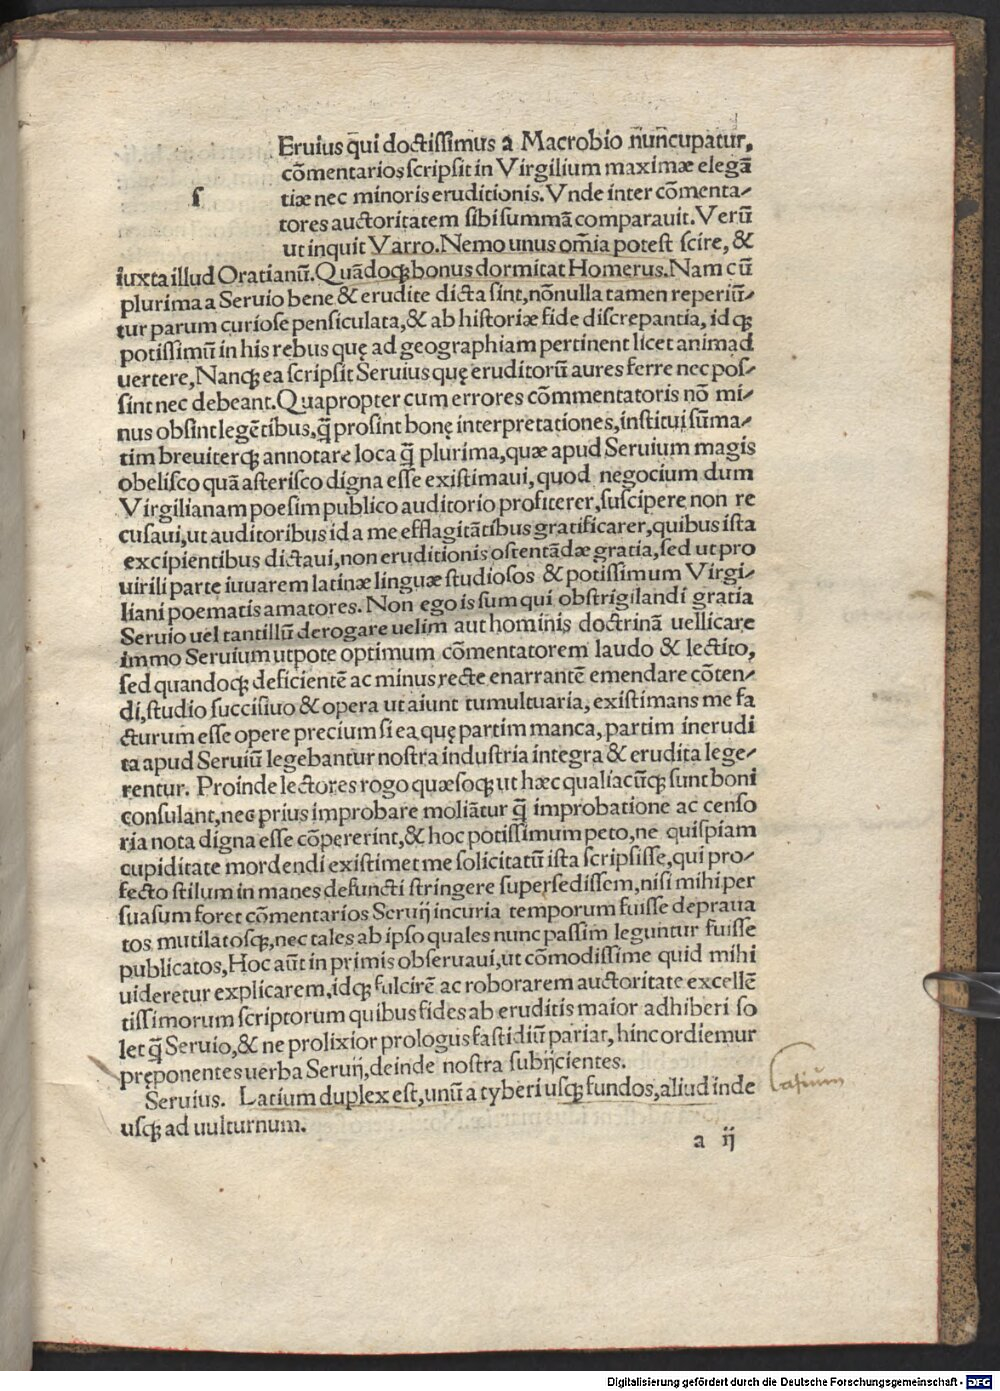 ſ
Eruius q̄ui doctiſſimus a Macrobio nūncupatur,
cōmentarios ſcripſit in Virgilium maximæ elegā
tiæ nec minoris eruditionis. Vnde inter cōmenta-
tores auctoritatem ſibi ſummā comparauit. Verū
ut inquit Varro. Nemo unus om̄ia poteſt ſcire, &
iuxta illud Oratianū. Quādoqꝫ bonus dormitat Homerus. Nam cū
plurima a Seruio bene & erudite dicta ſint, nōnulla tamen reperiū-
tur parum curioſe penſiculata, & ab hiſtoriæ fide diſcrepantia, id qꝫ
potiſſimū in his rebus quę ad geographiam pertinent licet animad
uertere, Nanqꝫ ea ſcripſit Seruius quę eruditorū aures ferre nec poſ-
ſint nec debeant. Quapropter cum errores cōmmentatoris nō mi-
nus obſint legētibus, q̄ proſint bonę interpretationes, inſtitui ſūma-
tim breuiterqꝫ annotare loca q̄ plurima, quæ apud Seruium magis
obeliſco quā aſteriſco digna eſſe exiſtimaui, quod negocium dum
Virgilianam poeſim publico auditorio profiterer, ſuſcipere non re
cuſaui, ut auditoribus id a me efflagitātibus gratificarer, quibus iſta
excipientibus dictaui, non eruditionis oſtentādæ gratia, ſed ut pro
uirili parte iuuarem latinæ linguæ ſtudioſos & potiſſimum Virgi-
liani poematis amatores. Non ego is ſum qui obſtrigilandi gratia
Seruio uel tantillū derogare uelim aut hominis doctrinā uellicare
immo Seruium utpote optimum cōmentatorem laudo & lectito,
ſed quandoqꝫ deficientē ac minus recte enarrantē emendare cōten-
di, ſtudio ſucciſiuo & opera ut aiunt tumultuaria, exiſtimans me fa
cturum eſſe opere precium ſi ea quę partim manca, partim inerudi
ta apud Seruiū legebantur noſtra induſtria integra & erudita lege-
rentur. Proinde lectores rogo quæſoqꝫ ut hæc qualiacūqꝫ ſunt boni
conſulant, nec prius improbare moliātur q̄ improbatione ac cenſo
ria nota digna eſſe cōpererint, & hoc potiſſimum peto, ne quiſpiam
cupiditate mordendi exiſtimet me ſolicitatū iſta ſcripſiſſe, qui pro-
fecto ſtilum in manes defuncti ſtringere ſuperſediſſem, niſi mihi per
ſuaſum foret cōmentarios Seruij incuria temporum fuiſſe depraua
tos mutilatoſqꝫ, nec tales ab ipſo quales nunc paſſim leguntur fuiſſe
publicatos, Hoc aūt in primis obſeruaui, ut cōmodiſſime quid mihi
uideretur explicarem, idqꝫ fulcirē ac roborarem auctoritate excellē
tiſſimorum ſcriptorum quibus fides ab eruditis maior adhiberi ſo
let q̄ Seruio, & ne prolixior prologus faſtidiū pariat, hinc ordiemur
pręponentes uerba Seruij, deinde noſtra ſubijcientes.
Seruius. Latium duplex eſt, unū a tyberi uſqꝫ fundos, aliud inde
uſqꝫ ad uulturnum.
Latium
a ij
Digitalisierung gefördert durch die Deutsche Forschungsgemeinschaft - DFG